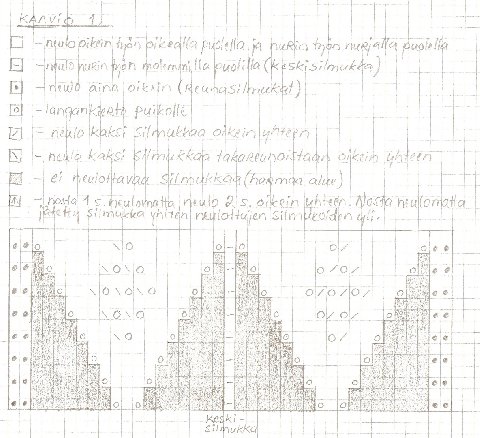 KAAVIO 1.
- neulo oikein työn oikealla puolella ja nurin työn nurjalla puolella
- neulo nurin työn molemmilla puolilla (keskisilmukka)
- neulo aina oikein (reunasilmukat)
- langankierto puikolle
- neulo kaksi silmukkaa oikein yhteen
- neulo kaksi silmukkaa takareunoistaan oikein yhteen
- ei neulottavaa silmukkaa (harmaa alue)
- nosta 1 s. neulomatta, neulo 2 s. oikein yhteen. Nosta neulomatta
jätetty silmukka yhteen neulottujen silmukoiden yli.
keski-
silmukka